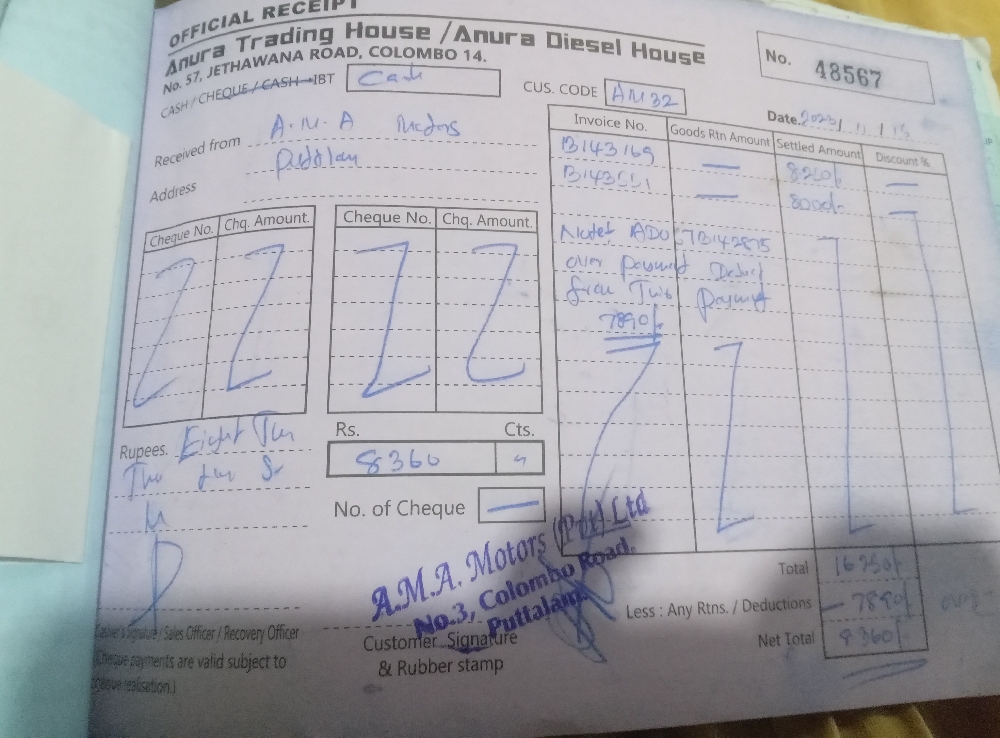 OFFICIAL RECEIPT
Anura Trading House /Anura Diesel House
No. 57, JETHAWANA ROAD, COLOMBO 14.
No. 48567
CASH / CHEQUE / CASH IBT Cash
CUS. CODE AM32
Date. 2023/11/15
Received from A.M.A Motors
Address Puttalam
Cheque No. Chq. Amount.
Cheque No. Chq. Amount.
Invoice No. Goods Rtn Amount Settled Amount Discount %
B143169 — 8250/- —
B143551 — 8000/- —
Note: ADO B142875
over payment Deduct
from This payment
7890/-
Rupees. Eight Thu
Rs. Cts.
8360
No. of Cheque —
A.M.A. Motors (Pvt) Ltd
No.3, Colombo Road,
Puttalam.
Total 16250/-
Less : Any Rtns. / Deductions — 7890/-
Net Total 8360/-
Cashier's Signature / Sales Officer / Recovery Officer
(Cheque payments are valid subject to
cheque realisation.)
Customer Signature
& Rubber stamp